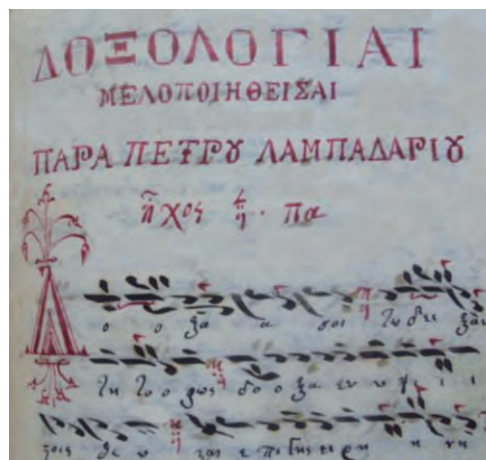 ΔΟΞΟΛΟΓΙΑΙ
ΜΕΛΟΠΟΙΗΘΕΙΣΑΙ
ΠΑΡΑ ΠΕΤΡȢ ΛΑΜΠΑΔΑΡΙȢ
ἦχος πα
Δ ο ο ξα α σοι τω δει ξαν
τι το ο φως δο ο ξα εν υ ψι ι ι
ϛοις θε ω και ε πι γης ει ρη η νη